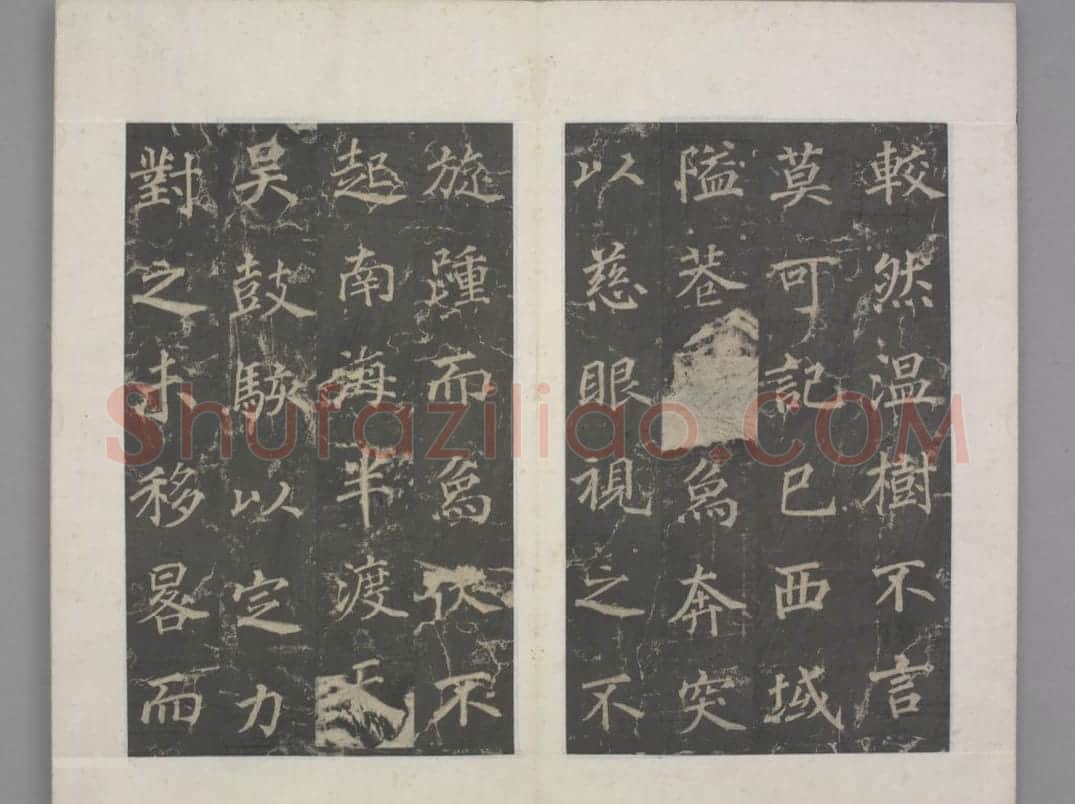 較然温樹不言
莫可記已西域
隘巷象奔突
以慈眼視之不
旋踵而象伏不
起南海半渡天
吳鼓駭以定力
對之未移晷而
Shufaziliao.COM